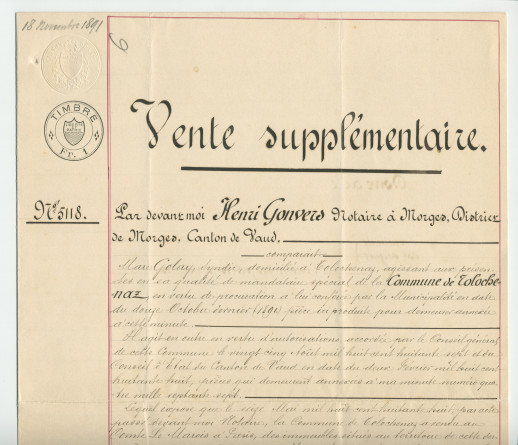 18 Novembre 1891
TIMBRE
Fr. 1
Vente supplémentaire.
N° 5118.
Par devant moi Henri Gonvers Notaire à Morges, District
de Morges, Canton de Vaud,
comparait
Marc Golay, syndic, domicilié à Tolochenaz, agissant aux présen-
tes en sa qualité de mandataire spécial de la Commune de Toloche-
naz en vertu de procuration à lui conférée par la Municipalité en date
du douze Octobre pièce ici produite pour demeurer annexée
à cette minute.
Il agit en outre en vertu d'autorisations accordées par le Conseil général
de cette Commune le vingt cinq Août mil huit cent huitante sept et du
Conseil d'Etat du Canton de Vaud en date du deux Février mil huit cent
huitante huit, pièces qui demeurent annexées à ma minute numéro qua-
tre mille septante sept.
Lequel expose que le seize Mai mil huit cent huitante huit, par acte
passé devant moi Notaire, la Commune de Tolochenaz a vendu au
Comte Le Marois à Paris, des immeubles situés au territoire de cette